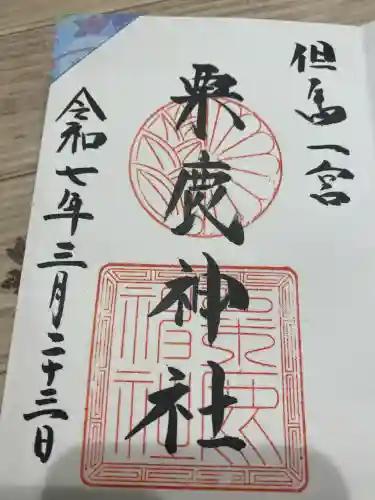 但馬一宮
粟鹿神社
令和七年三月二十三日
粟鹿
神社